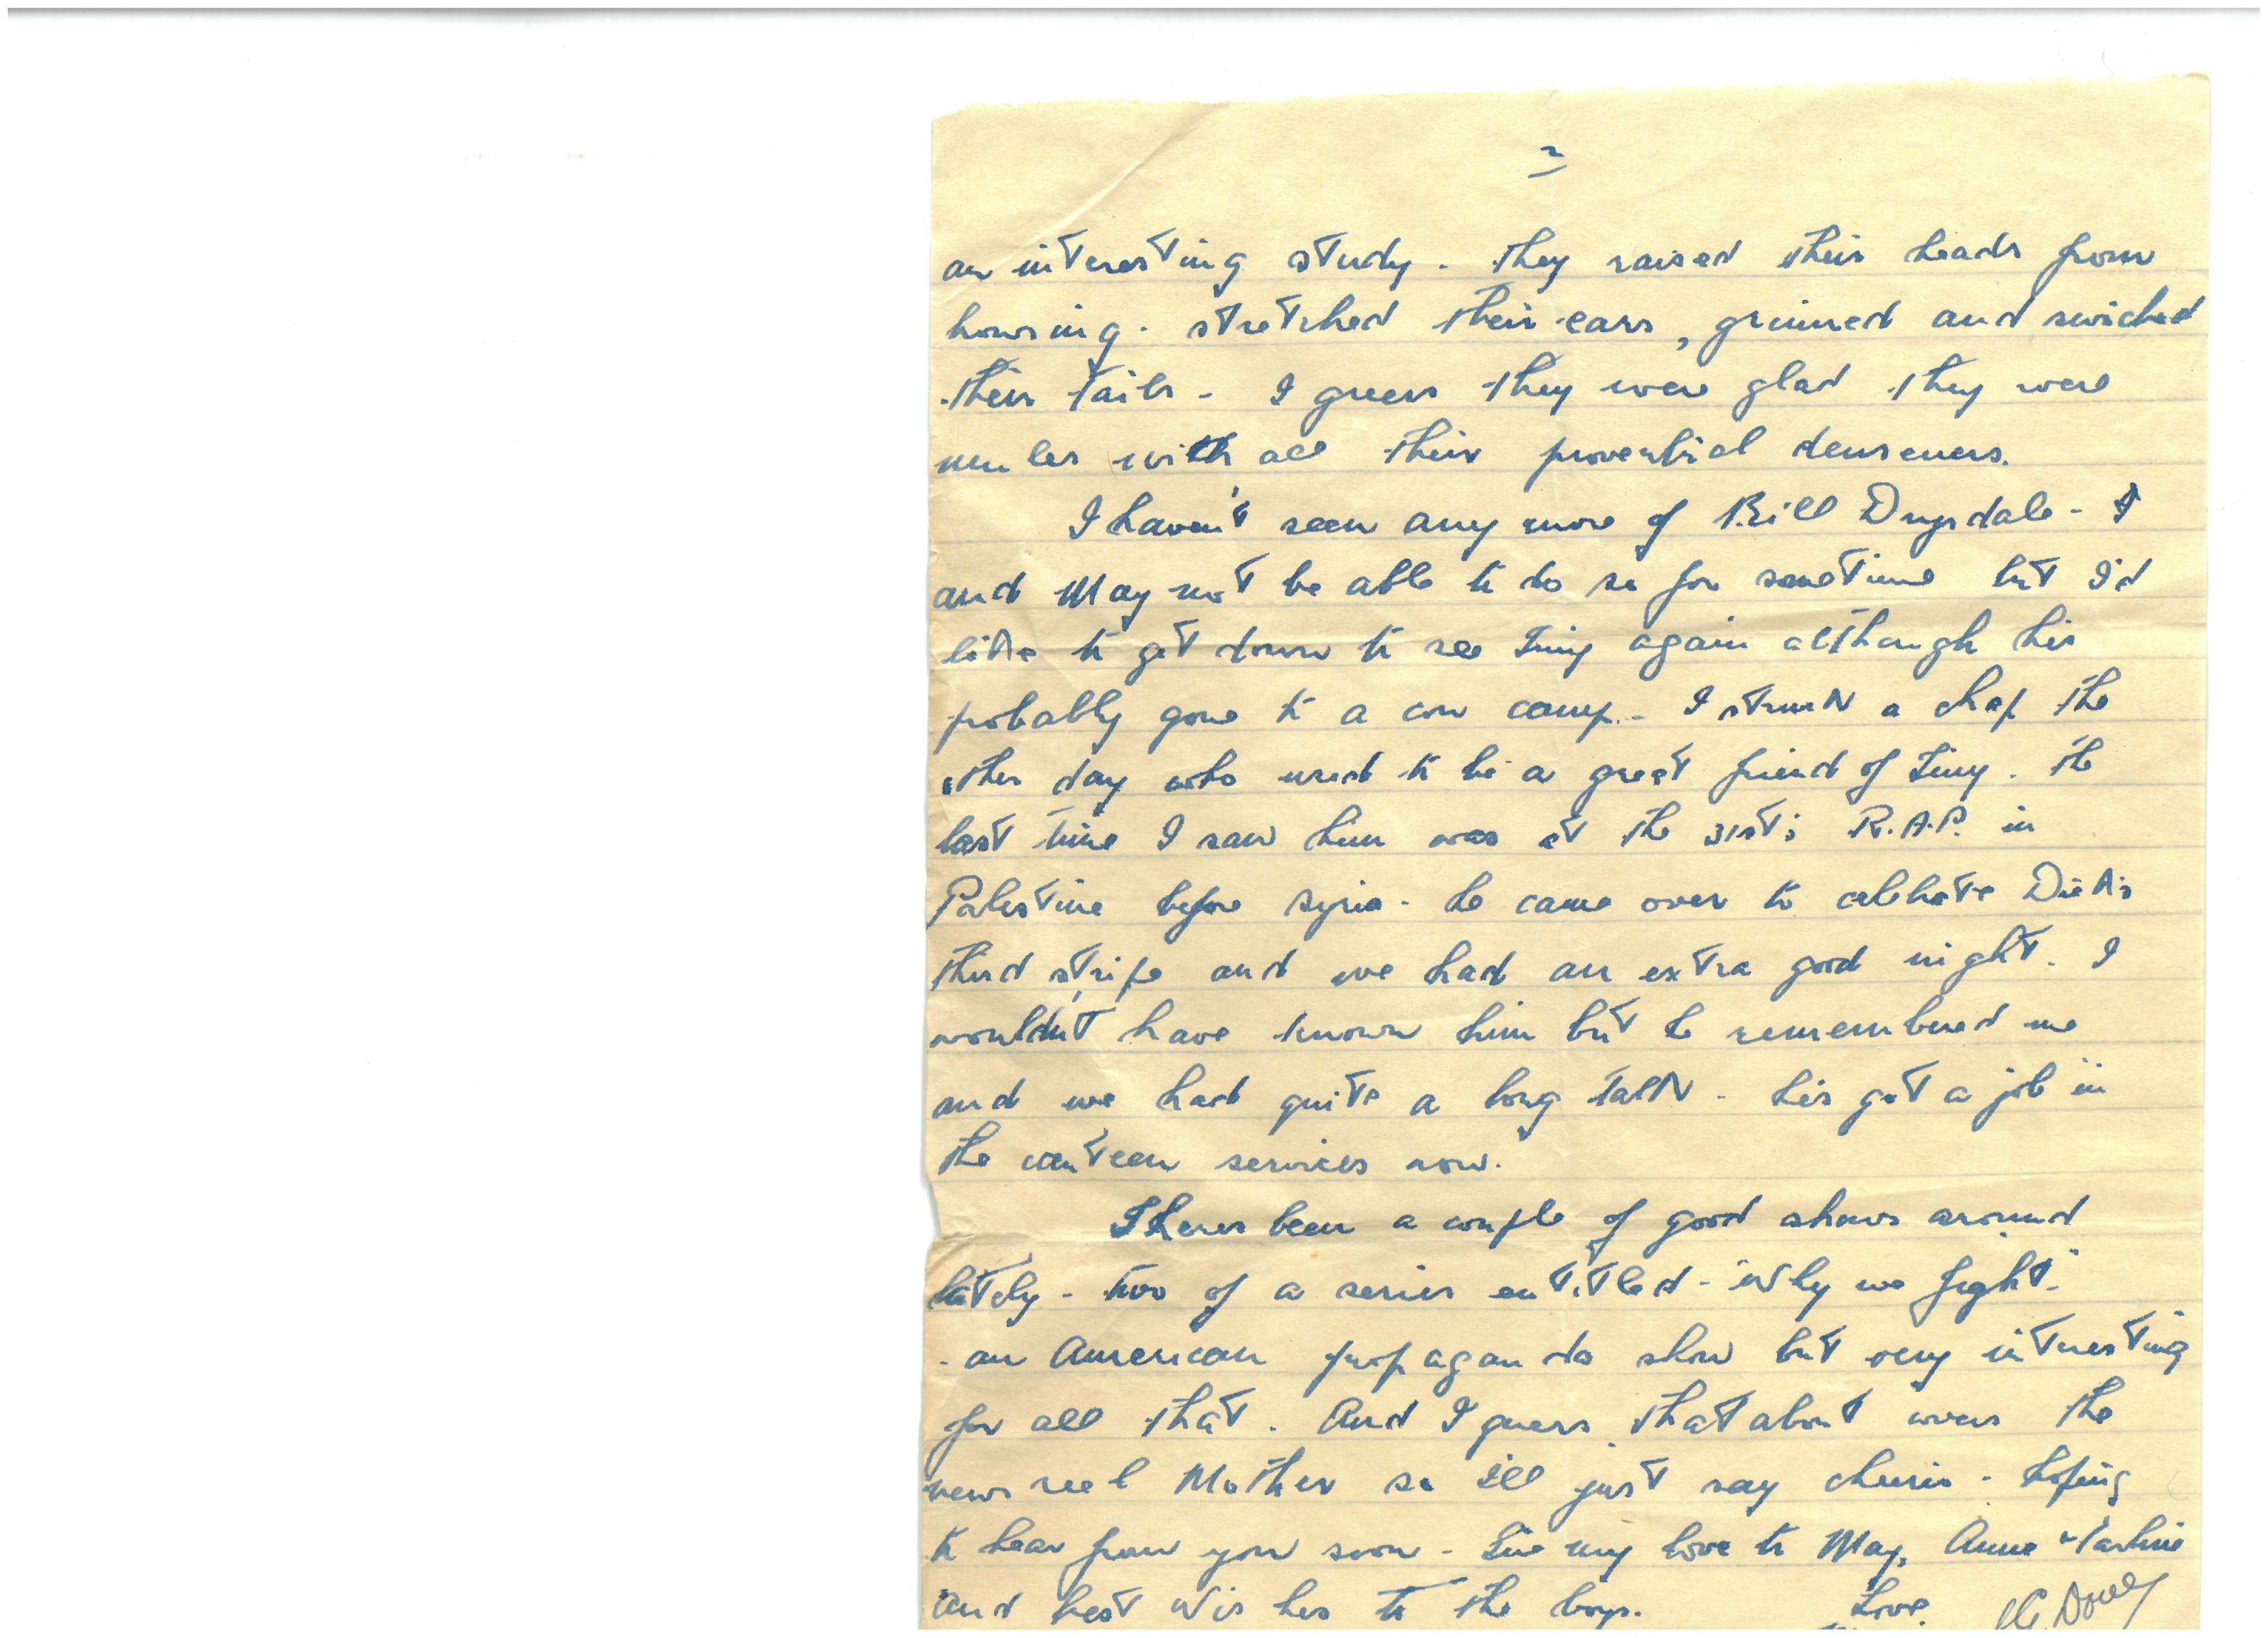 2
an interesting study - they raised their heads from
housing - stretched their ears, grinned and swiched
their tails - I guess they were glad they were
mules with all their proverbial denseness.
I haven't seen any more of Bill Dugdale - I
and May not be able to do so for sometime but I'd
like to get down to see Tiny again although his
probably gone to a con camp - I struck a chap the
other day who used to be a great friend of Tiny. The
last time I saw him was at the 31st's R.A.P. in
Palestine before Syria - he came over to celebrate Dick's
third stripe and we had an extra good night. I
wouldn't have known him but he remembered me
and we had quite a long talk - his got a job in
the canteen services now.
Theres been a couple of good shows around
lately - two of a series entitled - "Why we fight."
- an American propaganda show but very interesting
for all that. And I guess that about covers the
news reel Mother so I'll just say cheerio - hoping
to hear from you soon - Give my love to May, Anne
and best wishes to the boys. Love.